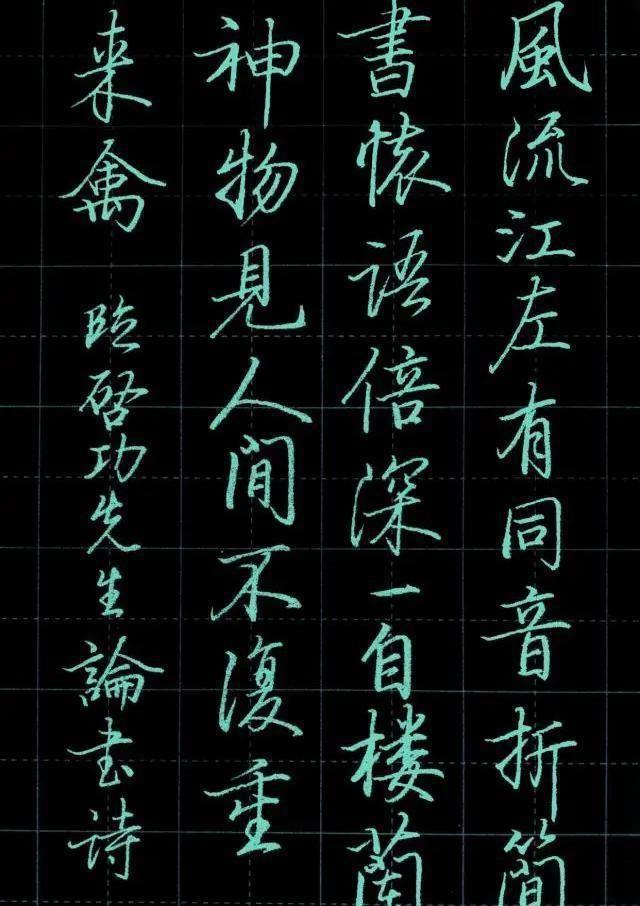 風流江左有同音折簡
書懷語倍深一自楼蘭
神物見人間不復重
来禽 臨啓功先生論书詩